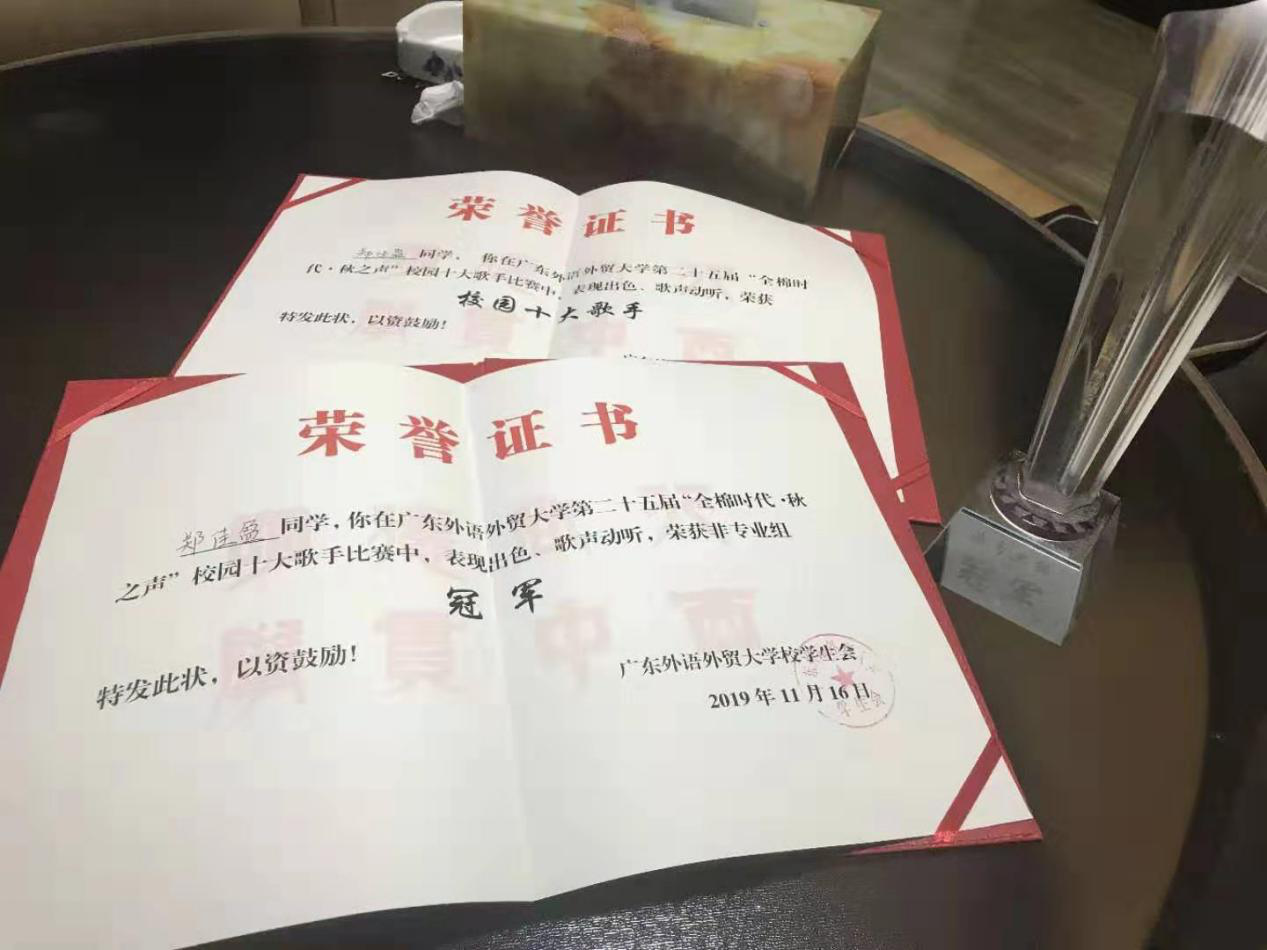 荣誉证书
郑佳盈 同学，你在广东外语外贸大学第二十五届“全棉时
代·秋之声”校园十大歌手比赛中，表现出色、歌声动听，荣获
校园十大歌手
特发此状，以资鼓励！
荣誉证书
郑佳盈 同学，你在广东外语外贸大学第二十五届“全棉时代·秋
之声”校园十大歌手比赛中，表现出色、歌声动听，荣获非专业组
冠军
特发此状，以资鼓励！
广东外语外贸大学校学生会
2019年11月16日
学生会
冠军